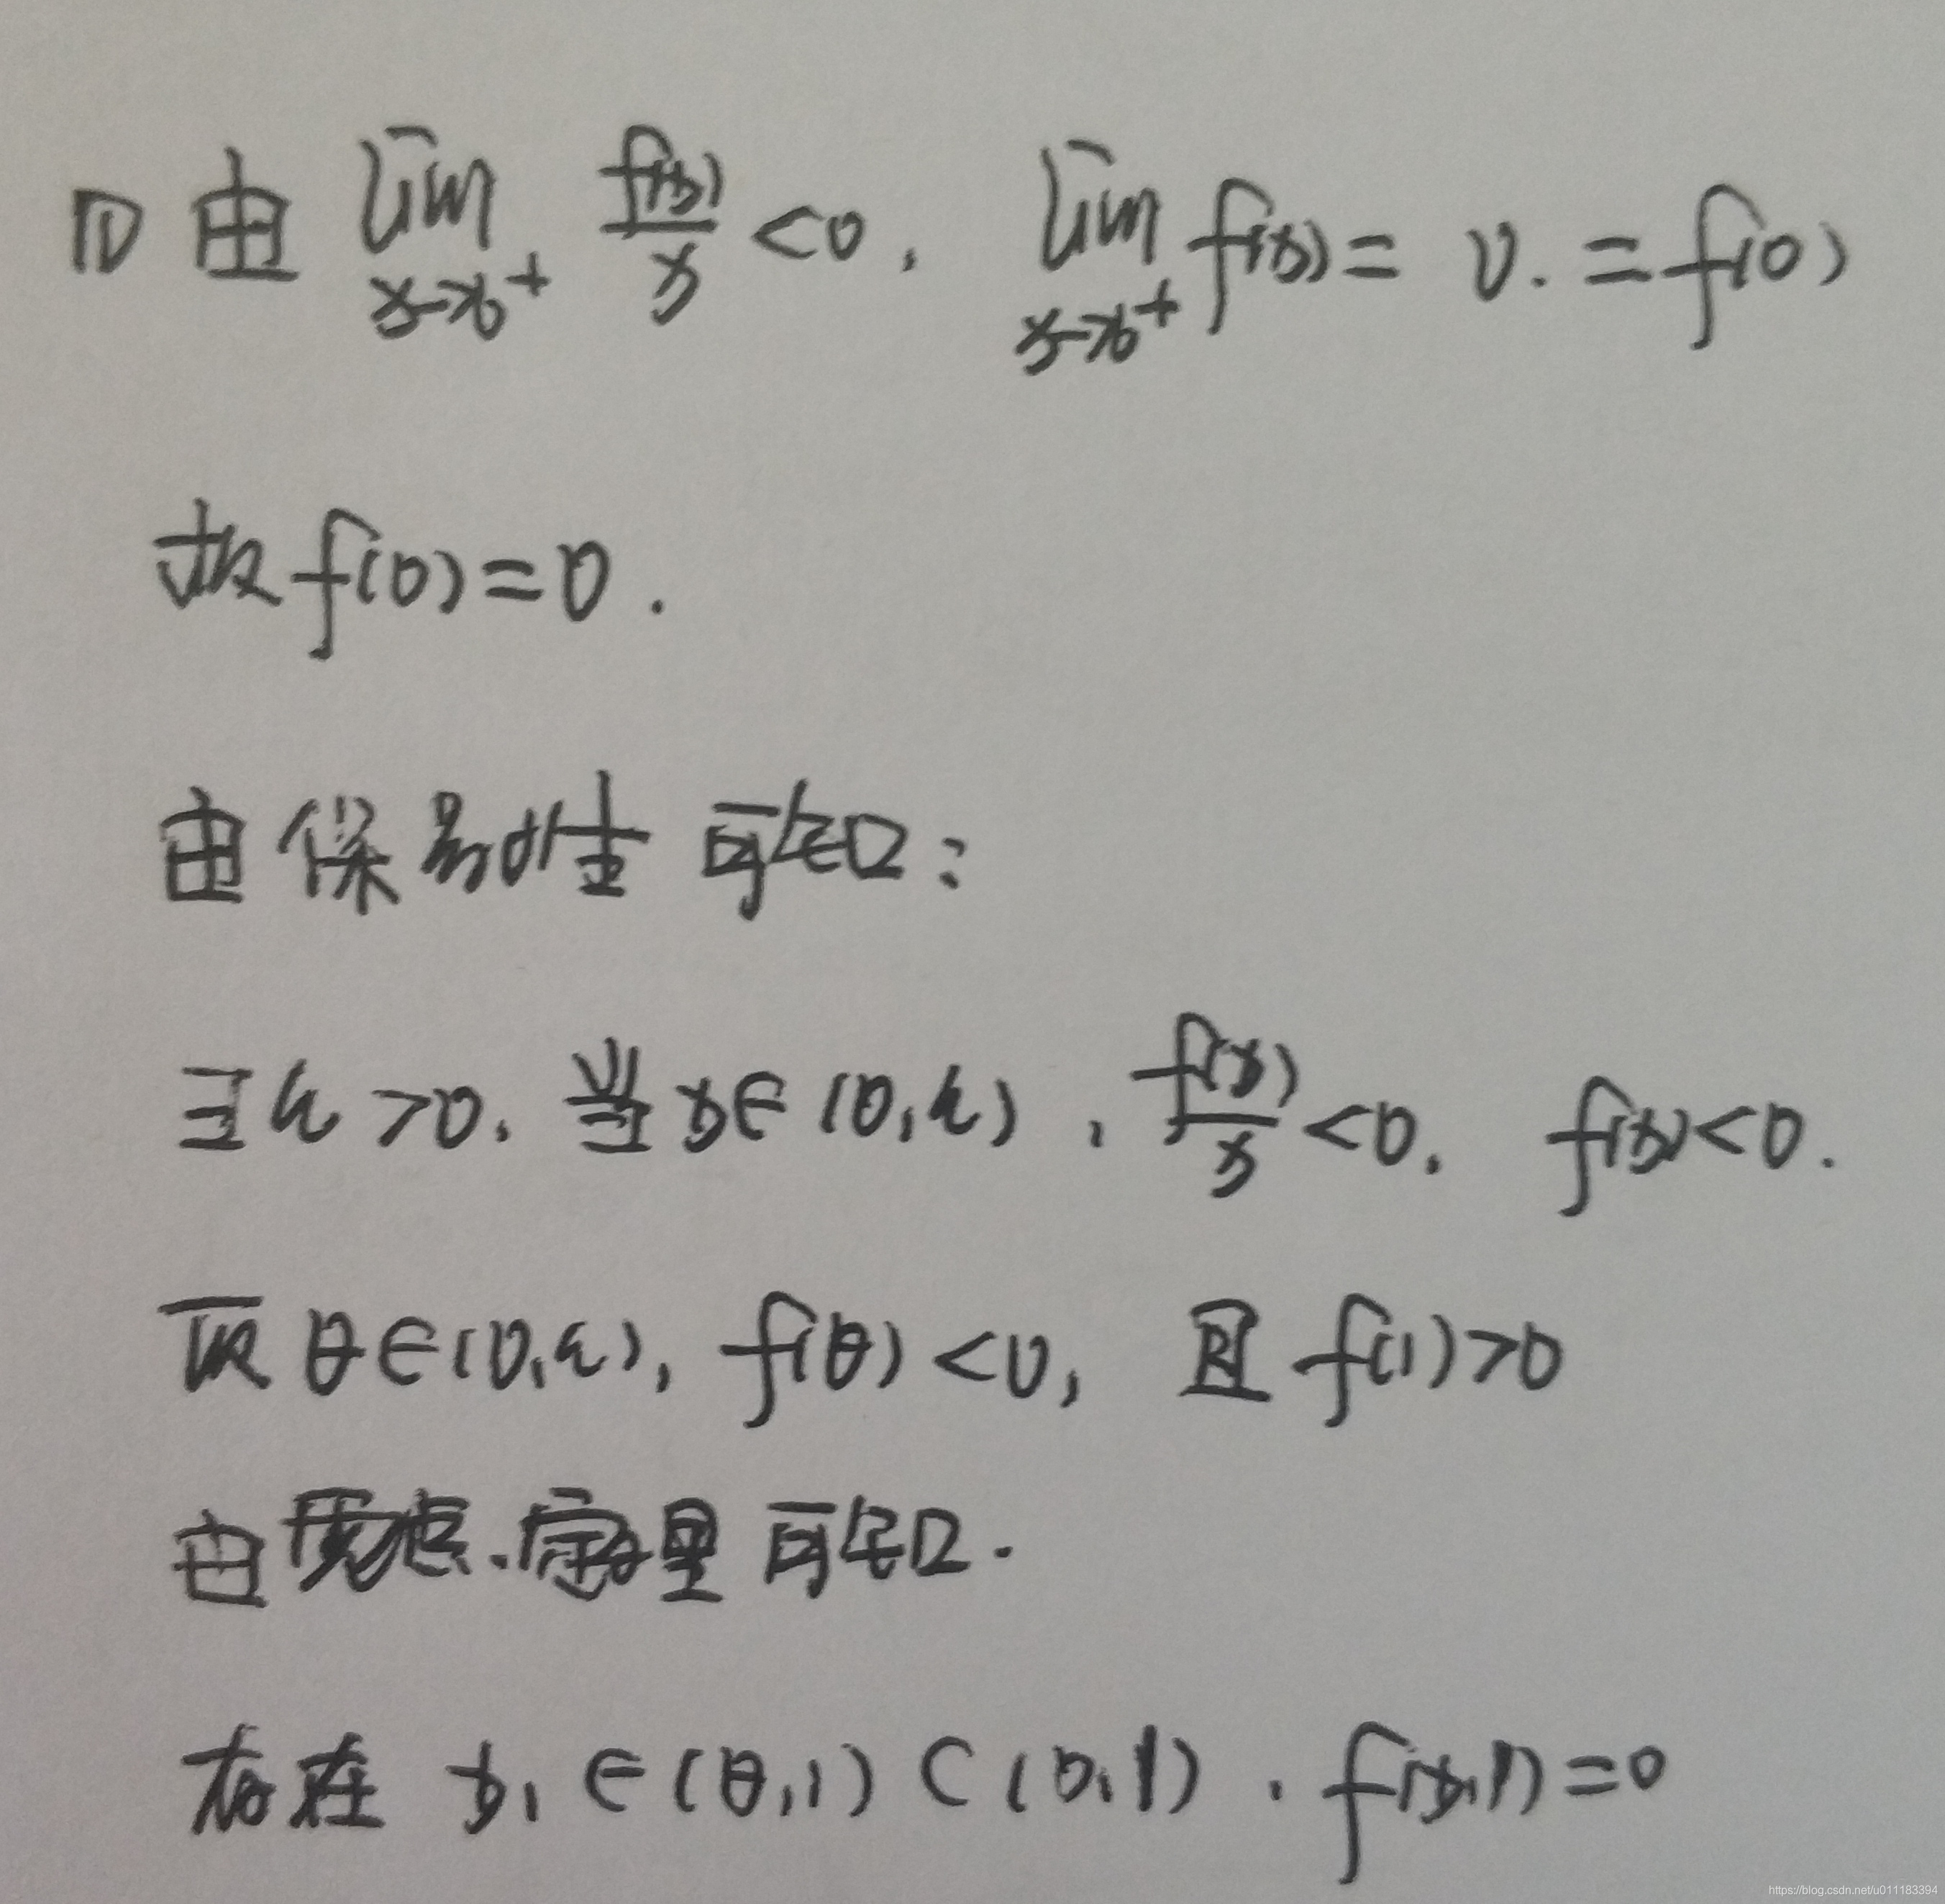 (1) 由 lim x→x₀⁺ f(x)/x <0, lim x→x₀⁺ f(x)= 0. =f(0)
故f(0)=0.
由保号性可知:
∃ε>0. 当x∈(0,ε), f(x)/x<0, f(x)<0.
取θ∈(0,ε), f(θ)<0, 且f(1)>0
由零点定理可知.
存在 x₁∈(θ,1)⊂(0,1). f(x₁)=0
https://blog.csdn.net/u011183394